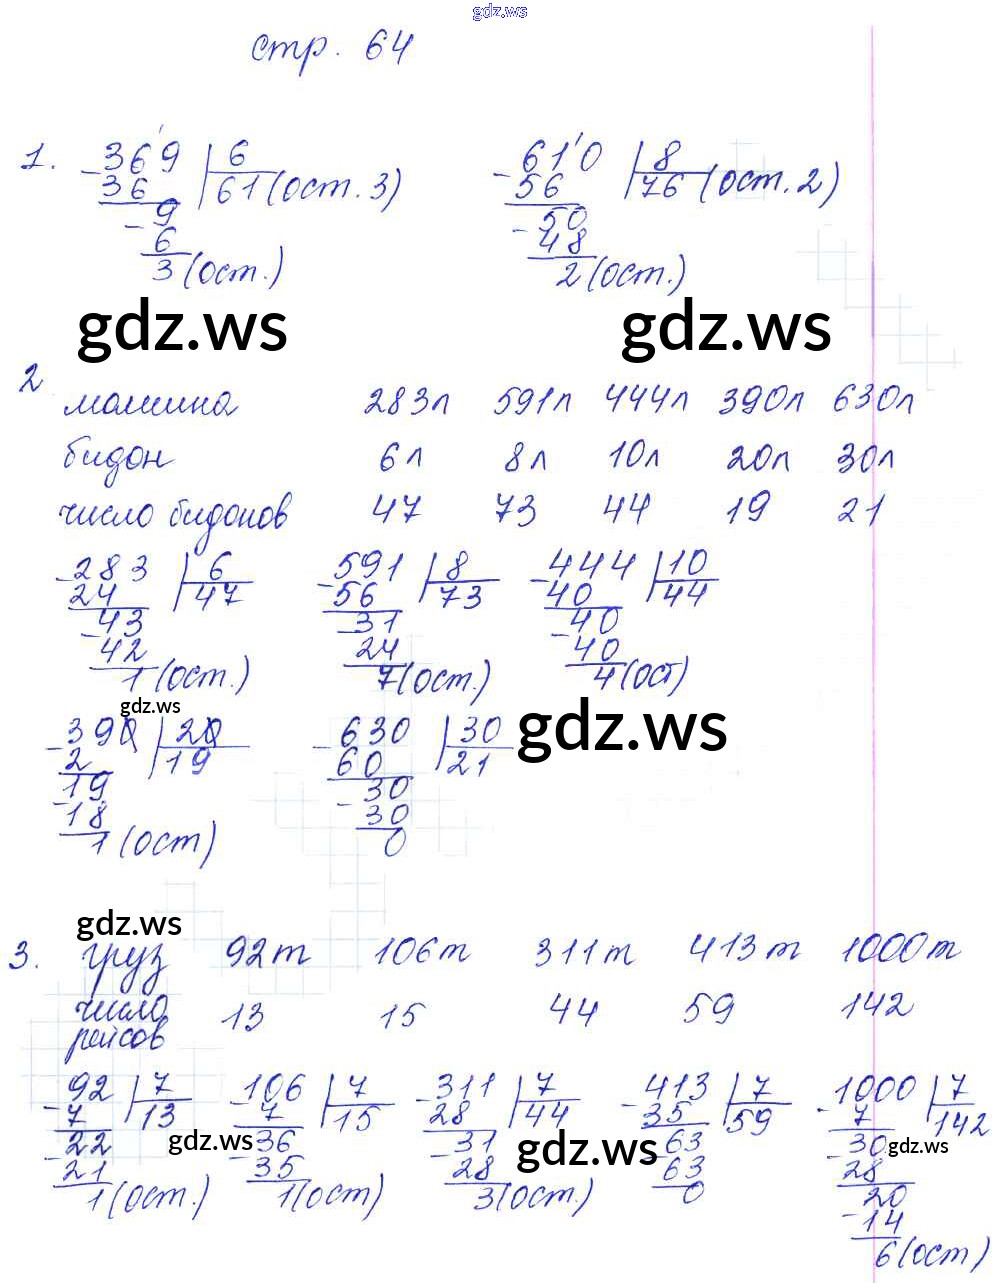 gdz.ws
стр. 64
1. -369 | 6 -610 | 8
36 61 (ост. 3) 56 76 (ост. 2)
-9 -50
6 48
3 (ост.) 2 (ост.)
gdz.ws gdz.ws
2
машина 283л 591л 444л 390л 630л
бидон 6л 8л 10л 20л 30л
число бидонов 47 73 44 19 21
-283 | 6 -591 | 8 -444 | 10
24 47 56 73 40 44
-43 -31 -40
42 24 40
1 (ост.) 7 (ост.) 4 (ост)
gdz.ws gdz.ws
-390 | 20 -630 | 30
2 19 60 21
-19 -30
18 30
1 (ост) 0
gdz.ws
3. груз 92т 106т 311т 413т 1000т
число
рейсов 13 15 44 59 142
-92 | 7 -106 | 7 -311 | 7 -413 | 7 -1000 | 7
7 13 7 15 28 44 35 59 7 142
-22 -36 -31 -63 -30
gdz.ws gdz.ws gdz.ws
21 35 28 63 28
1 (ост.) 1 (ост) 3 (ост.) 0 20
-14
6 (ост)